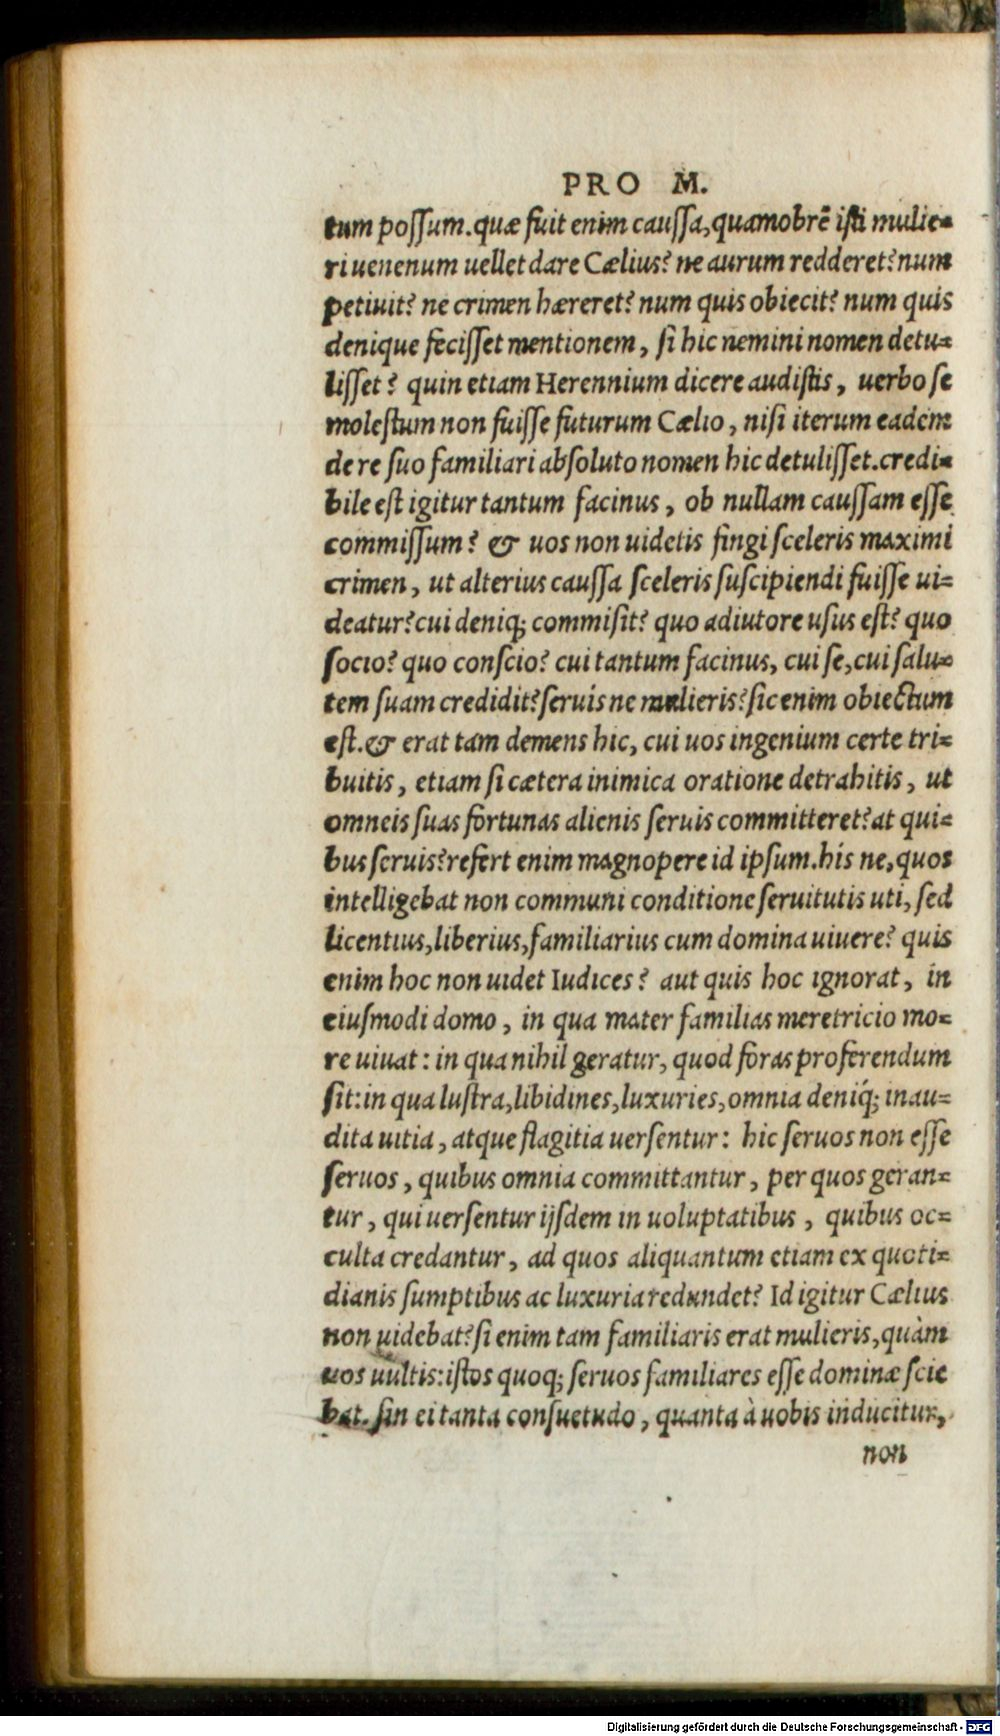 PRO M.
tum poſſum.quæ fuit enim cauſſa,quamobrẽ iſti mulie-
ri uenenum uellet dare Cælius? ne aurum redderet?num
petiuit? ne crimen hæreret? num quis obiecit? num quis
denique feciſſet mentionem, ſi hic nemini nomen detu-
liſſet? quin etiam Herennium dicere audiſtis, uerbo ſe
moleſtum non fuiſſe futurum Cælio, niſi iterum eadem
de re ſuo familiari abſoluto nomen hic detuliſſet.credi-
bile eſt igitur tantum facinus, ob nullam cauſſam eſſe
commiſſum? & uos non uidetis fingi ſceleris maximi
crimen, ut alterius cauſſa ſceleris ſuſcipiendi fuiſſe ui-
deatur?cui deniq; commiſit? quo adiutore uſus eſt? quo
ſocio? quo conſcio? cui tantum facinus, cui ſe,cui ſalu-
tem ſuam credidit?ſeruis ne mulieris?ſic enim obiectum
eſt.& erat tam demens hic, cui uos ingenium certe tri-
buitis, etiam ſi cætera inimica oratione detrahitis, ut
omneis ſuas fortunas alienis ſeruis committeret?at qui-
bus ſeruis?refert enim magnopere id ipſum.his ne,quos
intelligebat non communi conditione ſeruitutis uti, ſed
licentius,liberius,familiarius cum domina uiuere? quis
enim hoc non uidet Iudices? aut quis hoc ignorat, in
eiuſmodi domo, in qua mater familias meretricio mo-
re uiuat: in qua nihil geratur, quod foras proferendum
ſit:in qua luſtra,libidines,luxuries,omnia deniq́; inau-
dita uitia, atque flagitia uerſentur: hic ſeruos non eſſe
ſeruos, quibus omnia committantur, per quos geran-
tur, qui uerſentur ijſdem in uoluptatibus, quibus oc-
culta credantur, ad quos aliquantum etiam ex quoti-
dianis ſumptibus ac luxuria redundet? Id igitur Cælius
non uidebat?ſi enim tam familiaris erat mulieris,quàm
uos uultis:iſtos quoq; ſeruos familiares eſſe dominæ ſcie
bat.ſin ei tanta conſuetudo, quanta à uobis inducitur,
non
Digitalisierung gefördert durch die Deutsche Forschungsgemeinschaft - DFG